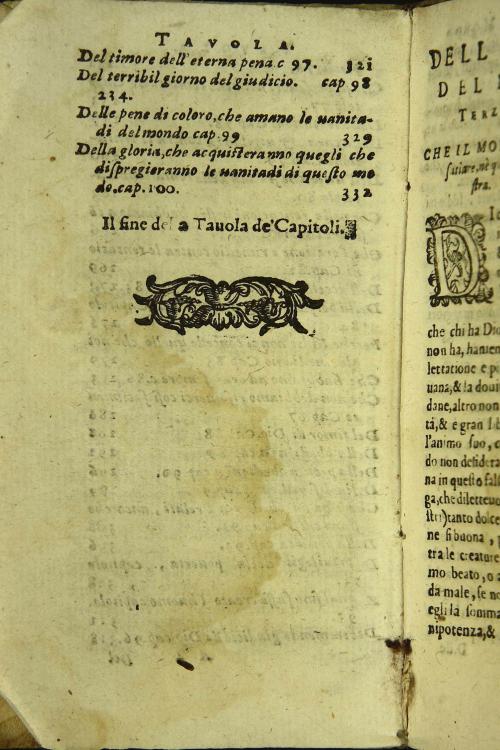 TAVOLA.
Del timore dell'eterna pena.c 97. 321
Del terribil giorno del giudicio. cap 98
234.
Delle pene di coloro, che amano le uanita-
di del mondo cap. 99 329
Della gloria, che acquisteranno quegli che
dispregieranno le uanitadi di questo mo
do. cap. 100. 332
Il fine della Tauola de' Capitoli.
DELL
DEL
TERZ
CHE IL MO
stra.
D
che chi ha Dio
non ha,
lettatione e p
uana, & la
dane, altro non
tà, & e gran
l'animo suo, c
do non desidera
na in questo fal
ga, che
stri) tanto dolce
ne si buona,
tra le creature
mo beato, o a
da male, se no
egli la somma
nipotenza, &